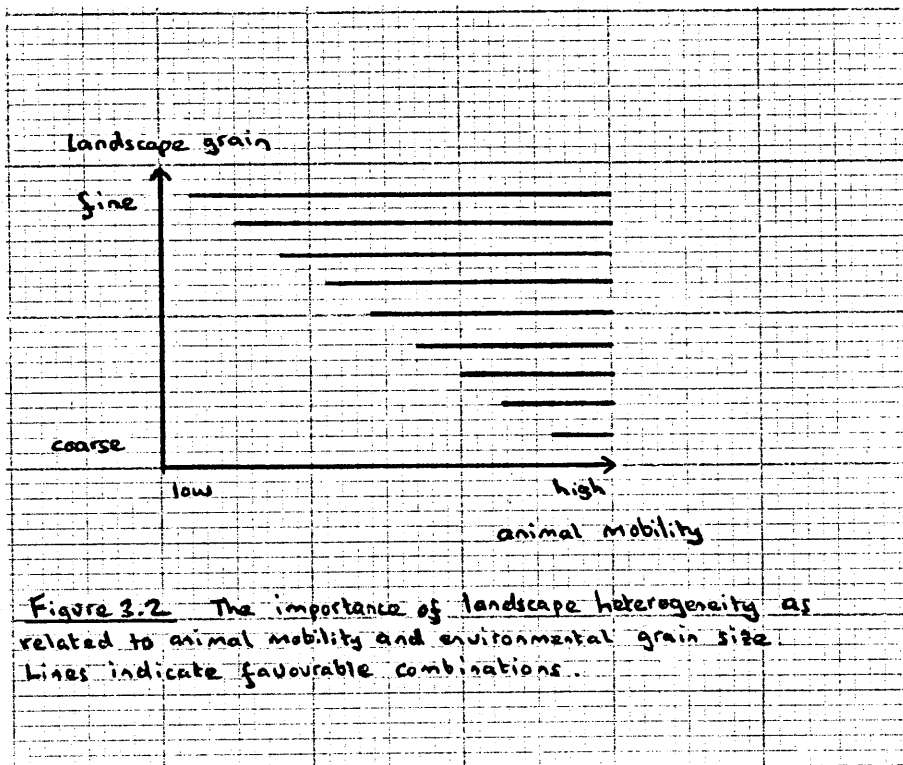 Landscape grain
fine
coarse
low
high
animal mobility
Figure 3.2 The importance of landscape heterogeneity as
related to animal mobility and environmental grain size.
Lines indicate favourable combinations.